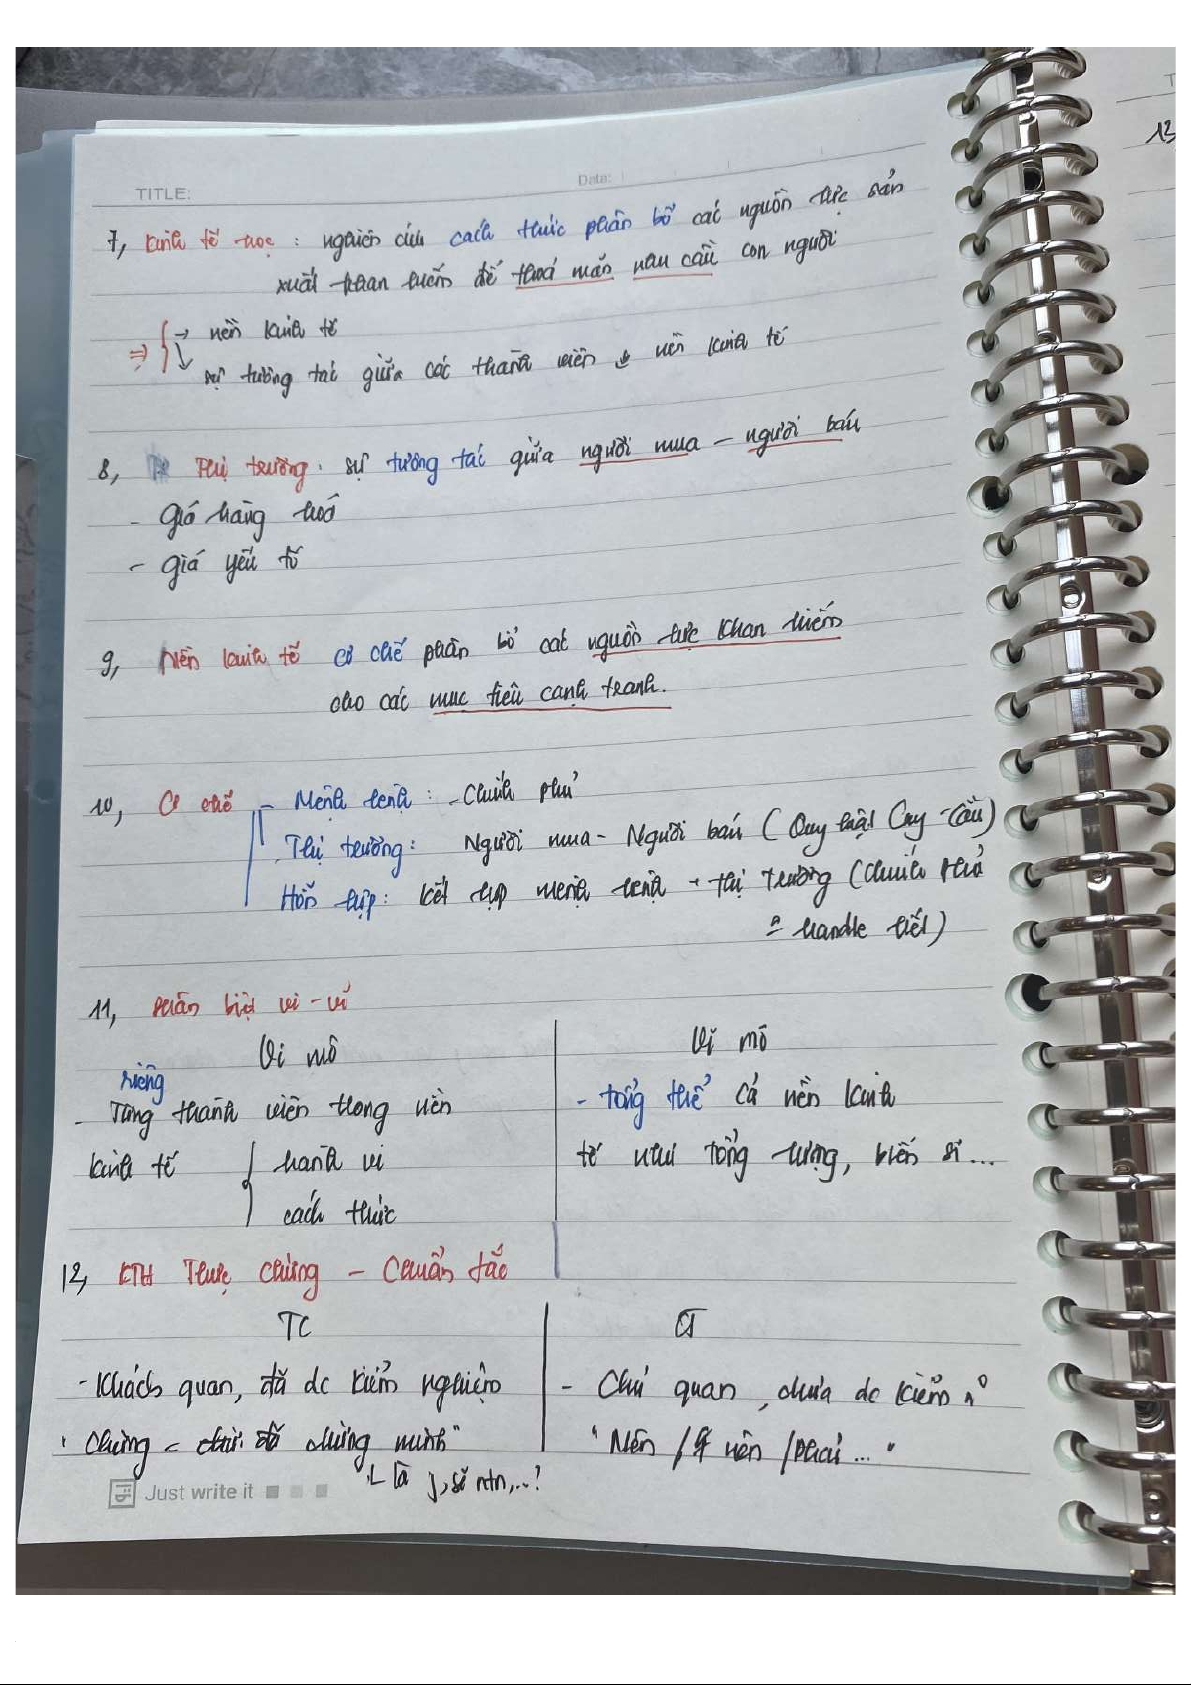 TITLE:
Date:
13
7, Kinh tế học : nghiên cứu cách thức phân bổ các nguồn lực sản
xuất khan hiếm để thoả mãn nhu cầu con người
⇒ { → nền kinh tế
↘ sự tương tác giữa các thành viên ↓ nền kinh tế
8, Thị trường : sự tương tác giữa người mua – người bán
- Giá hàng hoá
- Giá yếu tố
9, Nền kinh tế cơ chế phân bổ các nguồn lực khan hiếm
cho các mục tiêu cạnh tranh.
10, Cơ chế – Mệnh lệnh : - Chính phủ
Thị trường : Người mua – Người bán ( Quy luật Cung - Cầu )
Hỗn hợp : kết hợp mệnh lệnh + thị trường ( Chính Phủ
= handle tiết )
11, Phân biệt vi - vĩ
Vi mô
Vĩ mô
riêng
- Từng thành viên trong nền
kinh tế { hành vi
cách thức
- tổng thể cả nền kinh
tế như tổng lượng, biến số ...
12, KTH Thực chứng – Chuẩn tắc
TC
CT
- Khách quan, đã dc kiểm nghiệm
- Chủ quan, chưa dc kiểm n°
chứng minh"
" Nên / nên / phải ... "
Là j,
Just write it